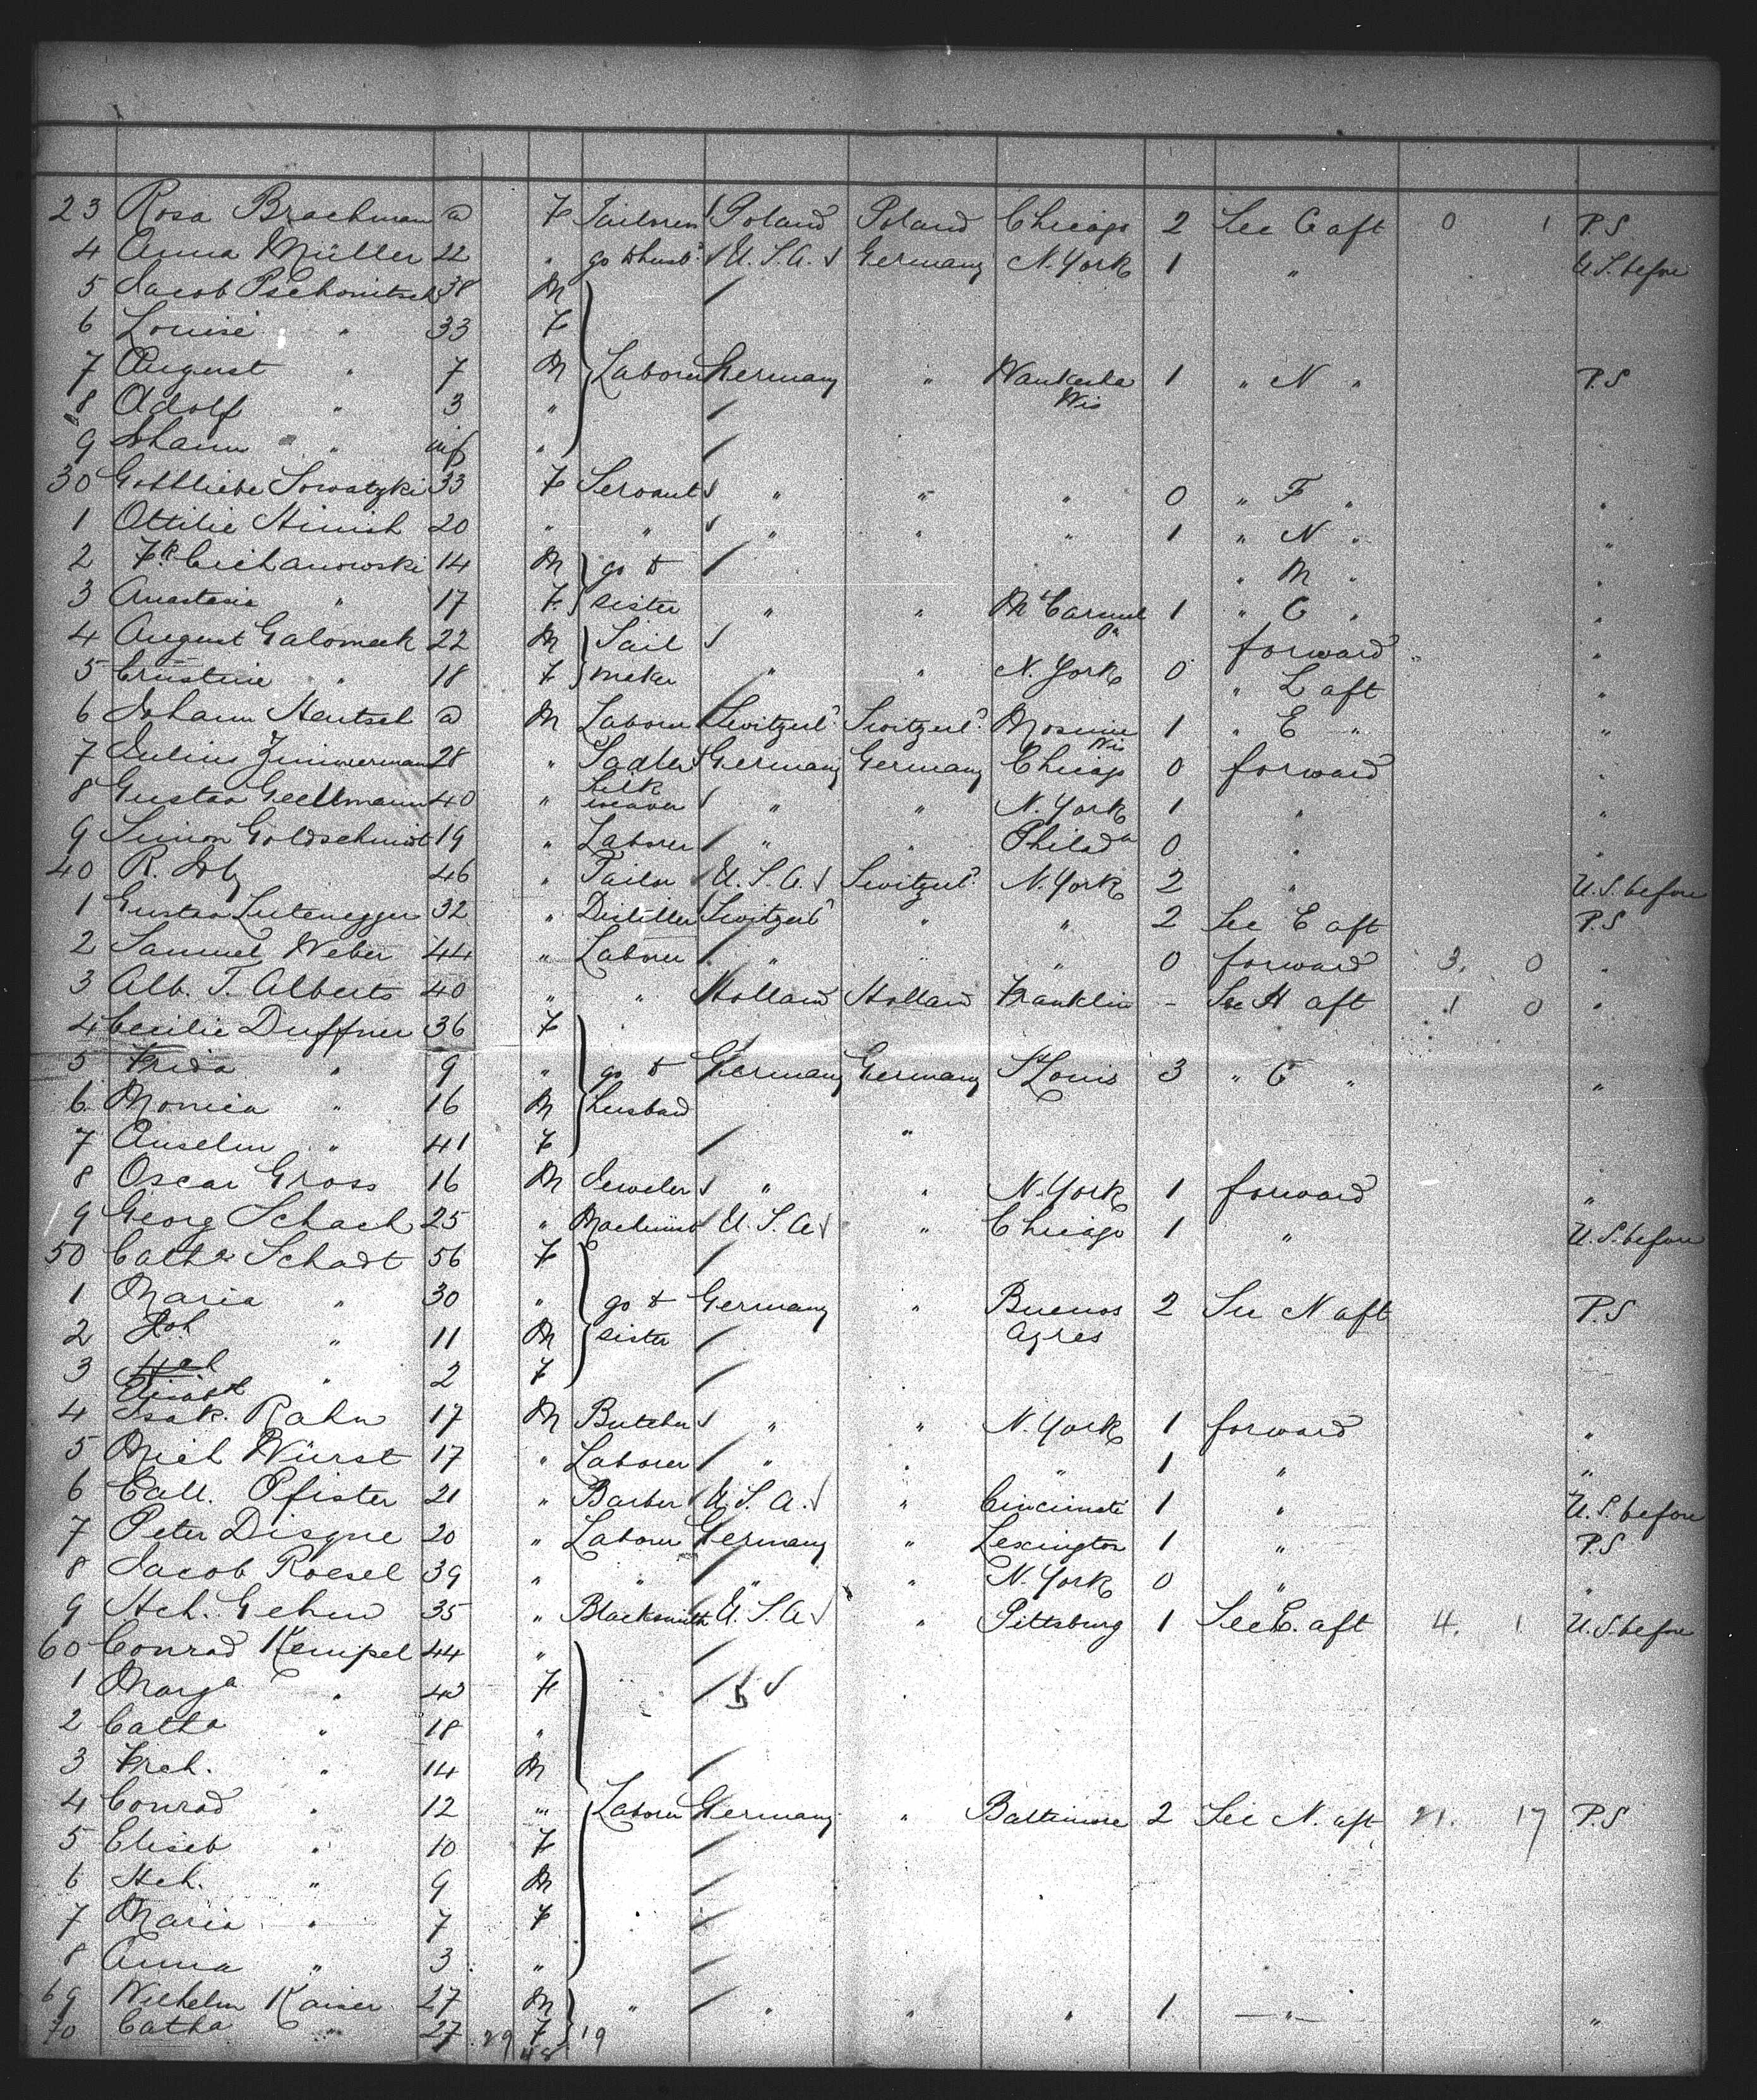 23 Rosa Brachman a F Tailoress Poland Poland Chicago 2 See C aft 0 1 P.S
4 Anna Müller 22 " go to husb. U.S.A. Germany N. York 1 " U.S. before
5 Jacob Pschonitsch 38 M
6 Louise " 33 F
7 August " 7 M Laborer Germany " Waukesha Wis 1 " N " P.S
8 Adolf " 3 "
9 Johann " " inf "
30 Gottliebe Sowatzki 33 F Servant " " " 0 " F " "
1 Ottilie Hinish 20 " " " " " 1 " N " "
2 Fk. Cichanowski 14 M go to " M " "
3 Anastasia " 17 F sister " " Mt Carmel Pa 1 " C " "
4 August Galomeck 22 M Sail forward "
5 Cristine " 18 F maker " " N. York 0 " L aft "
6 Johann Hartsch a M Laborer Switzerld. Switzerld. Mosinee Wis 1 " E " "
7 Julius Zimmerman 28 " Sadler Germany Germany Chicago 0 forward "
8 Gustav Geellmann 40 " Silk weaver " " N. York 1 " "
9 Simon Goldschmidt 19 " Laborer " " Philada 0 " "
40 R. Joly 46 " Tailor U.S.A. Switzerld. N. York 2 " U.S. before
1 Gustav Lutenegger 32 " Distiller Switzerld " " 2 See E aft P.S
2 Samuel Weber 44 " Laborer " " " 0 forward 3. 0 "
3 Alb. T. Alberts 40 " " Holland Holland Franklin - See H aft 1 0 "
4 Cecilie Duffner 36 F
5 Frida " 9 " go to Germany Germany St Louis 3 " C " "
6 Monica " 16 M husband
7 Anselm " 41 F "
8 Oscar Gross 16 M Jeweler " " N. York 1 forward "
9 Georg Schach 25 " Machinist U.S.A " Chicago 1 " U.S. before
50 Catha Schadt 56 F
1 Maria " 30 " go to Germany " Buenos 2 See N aft P.S
2 Joh " 11 M sister Ayres
3 Elisabet " 2 F
4 Isak. Rahn 17 M Butcher " " N. York 1 forward "
5 Mich Würst 17 " Laborer " " " 1 " "
6 Call. Pfister 21 " Barber U.S.A. " Cincinnati 1 " U.S. before
7 Peter Disque 20 " Laborer Germany " Lexington 1 " P.S
8 Jacob Roesel 39 " " " " N. York 0 " "
9 Hch. Gehm 35 " Blacksmith U.S.A " Pittsburg 1 See E. aft 4. 1 U.S. before
60 Conrad Kempel 44 "
1 Marga " 43 F
2 Catha " 18 "
3 Frch. " 14 M
4 Conrad " 12 " Laborer Germany " Baltimore 2 See N. aft 21. 17 P.S
5 Eliseb " 10 F
6 Hch. " 9 M
7 Maria " 7 F
8 Anna " 3 "
69 Wilhelm Kaiser 27 M " " " " 1 — " —
70 Catha " 27 29 F 19 "
48